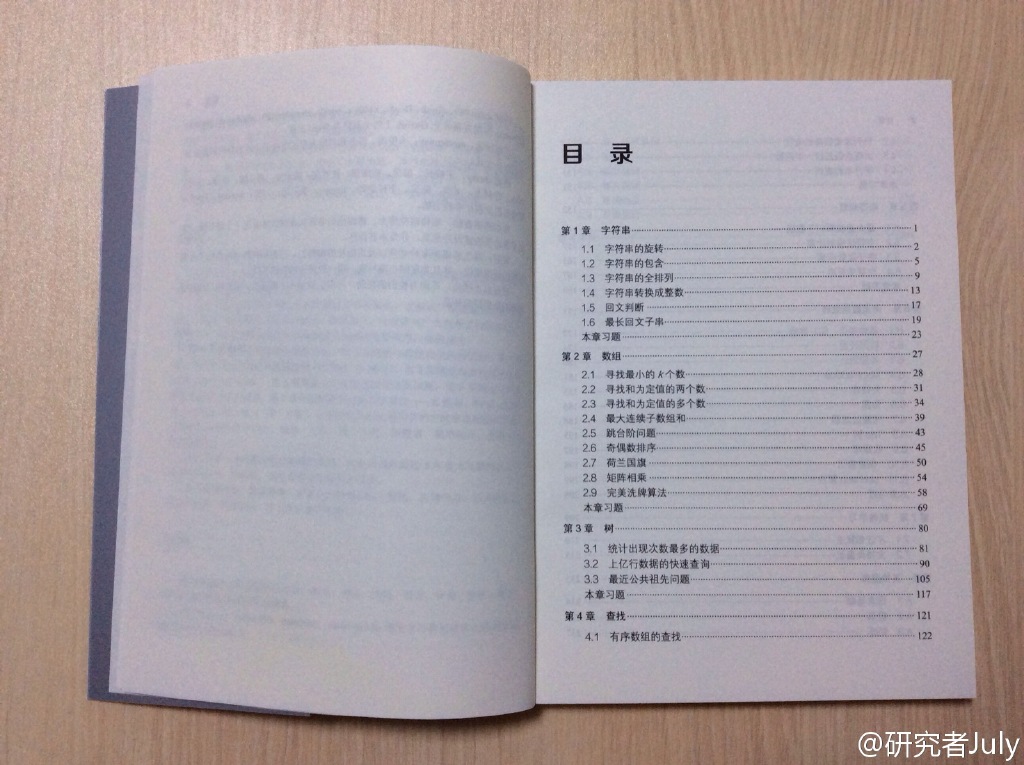 目 录
第 1 章 字符串 1
1.1 字符串的旋转 2
1.2 字符串的包含 5
1.3 字符串的全排列 9
1.4 字符串转换成整数 13
1.5 回文判断 17
1.6 最长回文子串 19
本章习题 23
第 2 章 数组 27
2.1 寻找最小的 k 个数 28
2.2 寻找和为定值的两个数 31
2.3 寻找和为定值的多个数 34
2.4 最大连续子数组和 39
2.5 跳台阶问题 43
2.6 奇偶数排序 45
2.7 荷兰国旗 50
2.8 矩阵相乘 54
2.9 完美洗牌算法 58
本章习题 69
第 3 章 树 80
3.1 统计出现次数最多的数据 81
3.2 上亿行数据的快速查询 90
3.3 最近公共祖先问题 105
本章习题 117
第 4 章 查找 121
4.1 有序数组的查找 122
@研究者July